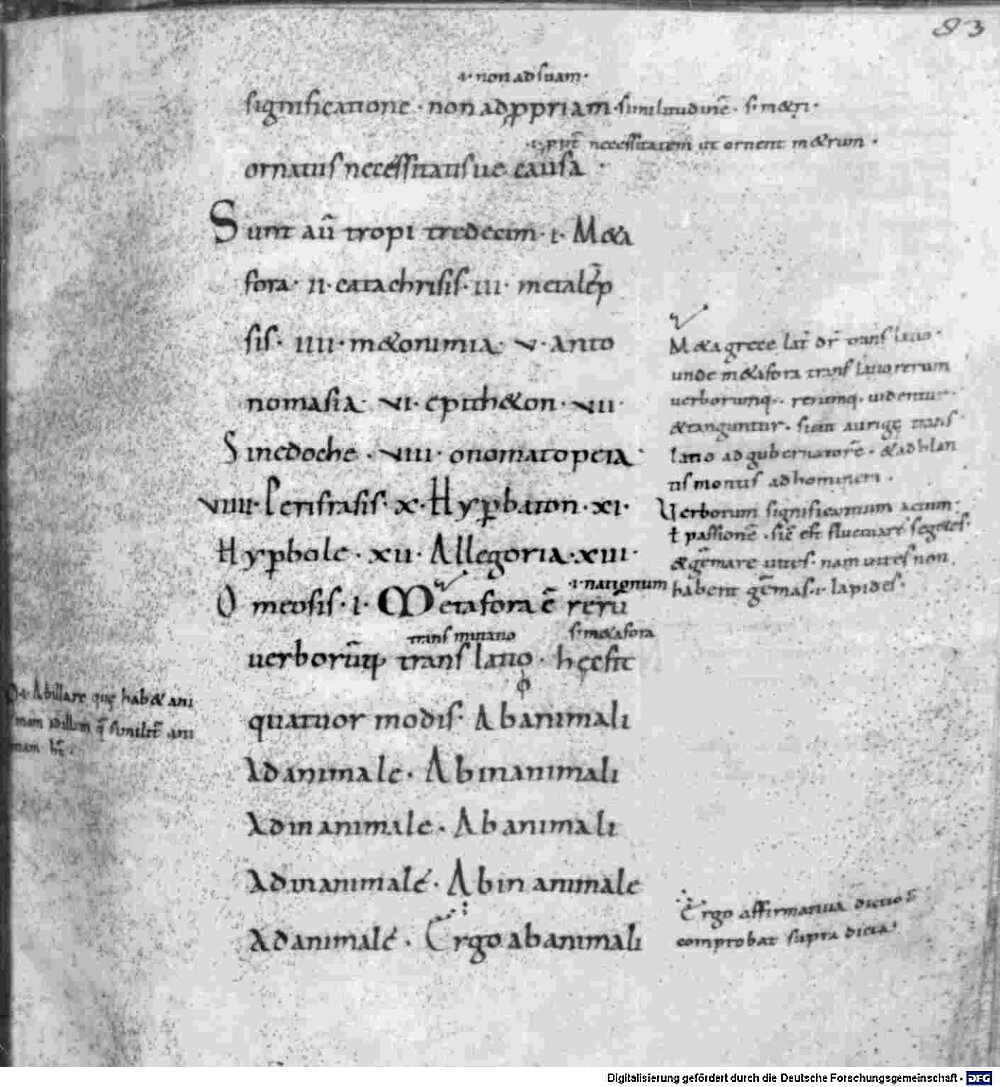 83
.i. non ad suam.
significatione. non ad ꝓpriam similitudinē. s. m&ri.
necessitatem ut ornent m&rum.
ornatus necessitatisue causa.
Sunt aū tropi tredecim. i. M&a
fora. ii. catachrisis. iii. metalēp
sis. iiii. m&onimia. v. anto
nomasia. vi. epith&on. vii.
Sinedoche. viii. onomatopeia.
viiii. Perifrasis. x. Hyꝑbaton. xi.
Hyꝑbole. xii. Allegoria. xiii.
.i. nationum
Omeosis. i. Metafora ē rerū
trans mutatio s. m&afora
uerborūq; trans latio. hęc fit
quatuor modis. Ab animali
Ad animale. Ab inanimali
Ad inanimale. Ab animali
Ad inanimale. Ab inanimale
Ad animale. Ergo ab animali
M&a grece lat̄ dr̄ trans latio.
unde m&afora trans latio rerum
uerborumq;. rerumq; uidentur
&tanguntur. sicut aurigę trans
latio ad gubernatorē. & ad
montis ad hominem.
Uerborum significantium actum
ł passionē. sic̄ est fluctuare segetes.
& gēmare uites. nam uites non
habent gēmas. i. lapides.
quę hab& ani
mam similit̄ ani
mam
Ergo affirmatiua dictio ē
comprobat supra dicta.
Digitalisierung gefördert durch die Deutsche Forschungsgemeinschaft - DFG